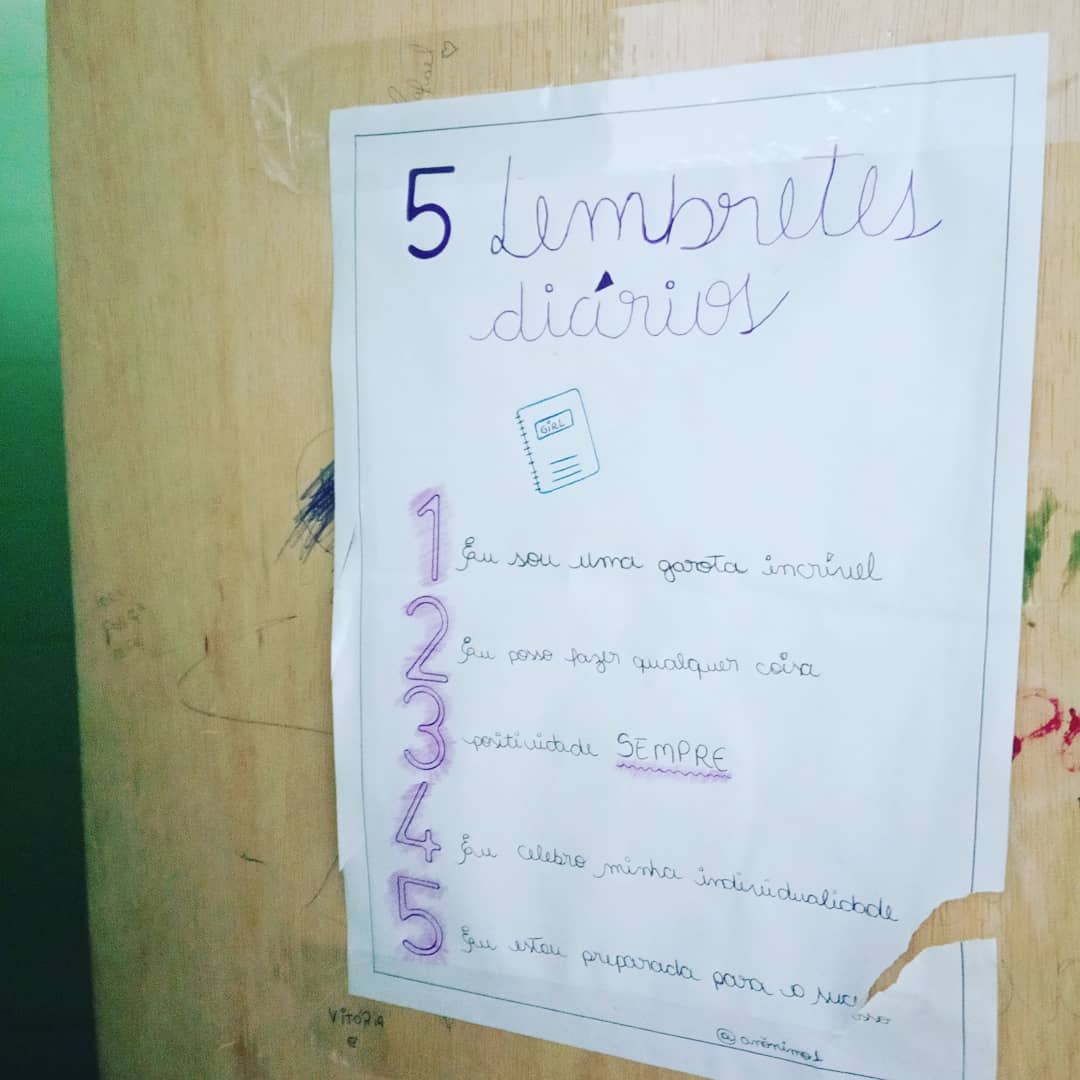 5 Lembretes
diários
GIRL
1 Eu sou uma garota incrível
2 Eu posso fazer qualquer coisa
3 positividade SEMPRE
4 Eu celebro minha individualidade
5 Eu estou preparada para o sucesso
@anônimos
VITÓRIA